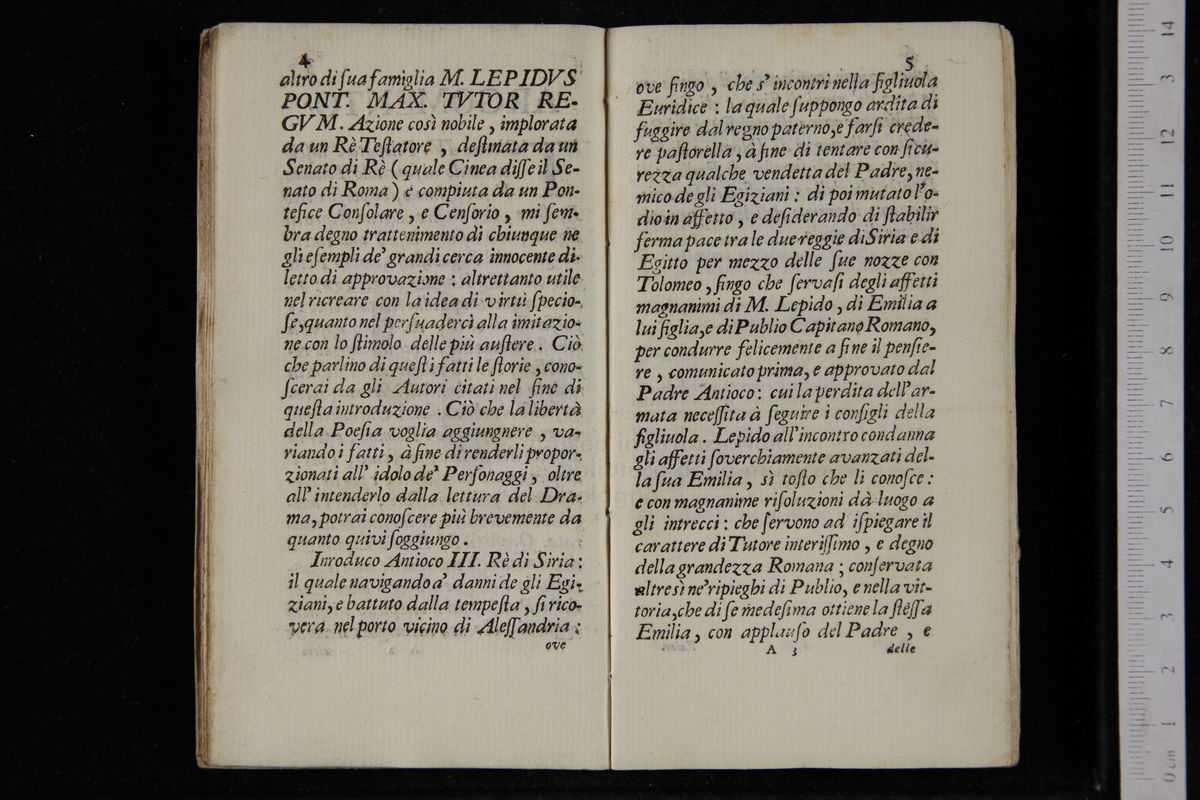 4
altro di ſua famiglia M. LEPIDVS
PONT. MAX. TVTOR RE-
GVM. Azione così nobile, implorata
da un Rè Teſtatore, deſtinata da un
Senato di Rè (quale Cinea diſſe il Se-
nato di Roma) e compiuta da un Pon-
tefice Conſolare, e Cenſorio, mi ſem-
bra degno trattenimento di chiunque ne
gli eſempli de' grandi cerca innocente di-
letto di approvazione: altrettanto utile
nel ricreare con la idea di virtù ſpecio-
ſe, quanto nel perſuaderci alla imitazio-
ne con lo ſtimolo delle più auſtere. Ciò
che parlino di queſti fatti le ſtorie, cono-
ſcerai da gli Autori citati nel fine di
queſta introduzione. Ciò che la libertà
della Poeſia voglia aggiungnere, va-
riando i fatti, à fine di renderli propor-
zionati all' idolo de' Perſonaggi, oltre
all' intenderlo dalla lettura del Dra-
ma, potrai conoſcere più brevemente da
quanto quivi ſoggiungo.
Inroduco Antioco III. Rè di Siria:
il quale navigando a' danni de gli Egi-
ziani, e battuto dalla tempeſta, ſi rico-
vera nel porto vicino di Aleſſandria:
ove
5
ove fingo, che s' incontri nella figliuola
Euridice: la quale ſuppongo ardita di
fuggire dal regno paterno, e farſi crede-
re paſtorella, à fine di tentare con ſicu-
rezza qualche vendetta del Padre, ne-
mico de gli Egiziani: di poi mutato l'o-
dio in affetto, e deſiderando di ſtabilir
ferma pace tra le due reggie di Siria e di
Egitto per mezzo delle ſue nozze con
Tolomeo, fingo che ſervaſi degli affetti
magnanimi di M. Lepido, di Emilia a
lui figlia, e di Publio Capitano Romano,
per condurre felicemente a fine il penſie-
re, comunicato prima, e approvato dal
Padre Antioco: cui la perdita dell' ar-
mata neceſſita à ſeguire i conſigli della
figliuola. Lepido all' incontro condanna
gli affetti ſoverchiamente avanzati del-
la ſua Emilia, sì toſto che li conoſce:
e con magnanime riſoluzioni dà luogo a
gli intrecci: che ſervono ad iſpiegare il
carattere di Tutore interiſſimo, e degno
della grandezza Romana; conſervata
altresì ne' ripieghi di Publio, e nella vit-
toria, che di ſe medeſima ottiene la ſteſſa
Emilia, con applauſo del Padre, e
A 3
delle